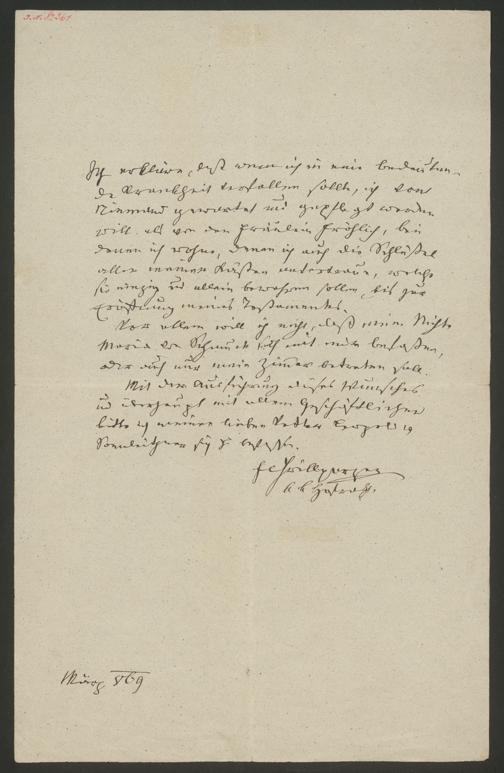 I. N. No 361
Ich erkläre, daß wenn ich in eine bedeuten-
de Krankheit verfallen sollte, ich von
Niemand gewartet und gepflegt werden
will als von den Fräulein Fröhlich, bei
denen ich wohne, denen ich auch die Schlüßel
aller meiner Kästen anvertraue, welche
sie einzig und allein bewahren sollen, bis zur
Eröffnung meines Testamentes.
Vor allem will ich nicht, daß meine Nichte
Maria von sich mit mir befaßen,
oder auch nur mein Zimmer betreten soll.
Mit der Ausführung dieses Wunsches
und überhaupt mit allem Geschäftlichen
bitte ich meinen lieben Vetter Leopold v
Sonnleithner sich zu befaßen.
Fr Grillparzer
k k Hofrath.
März 869